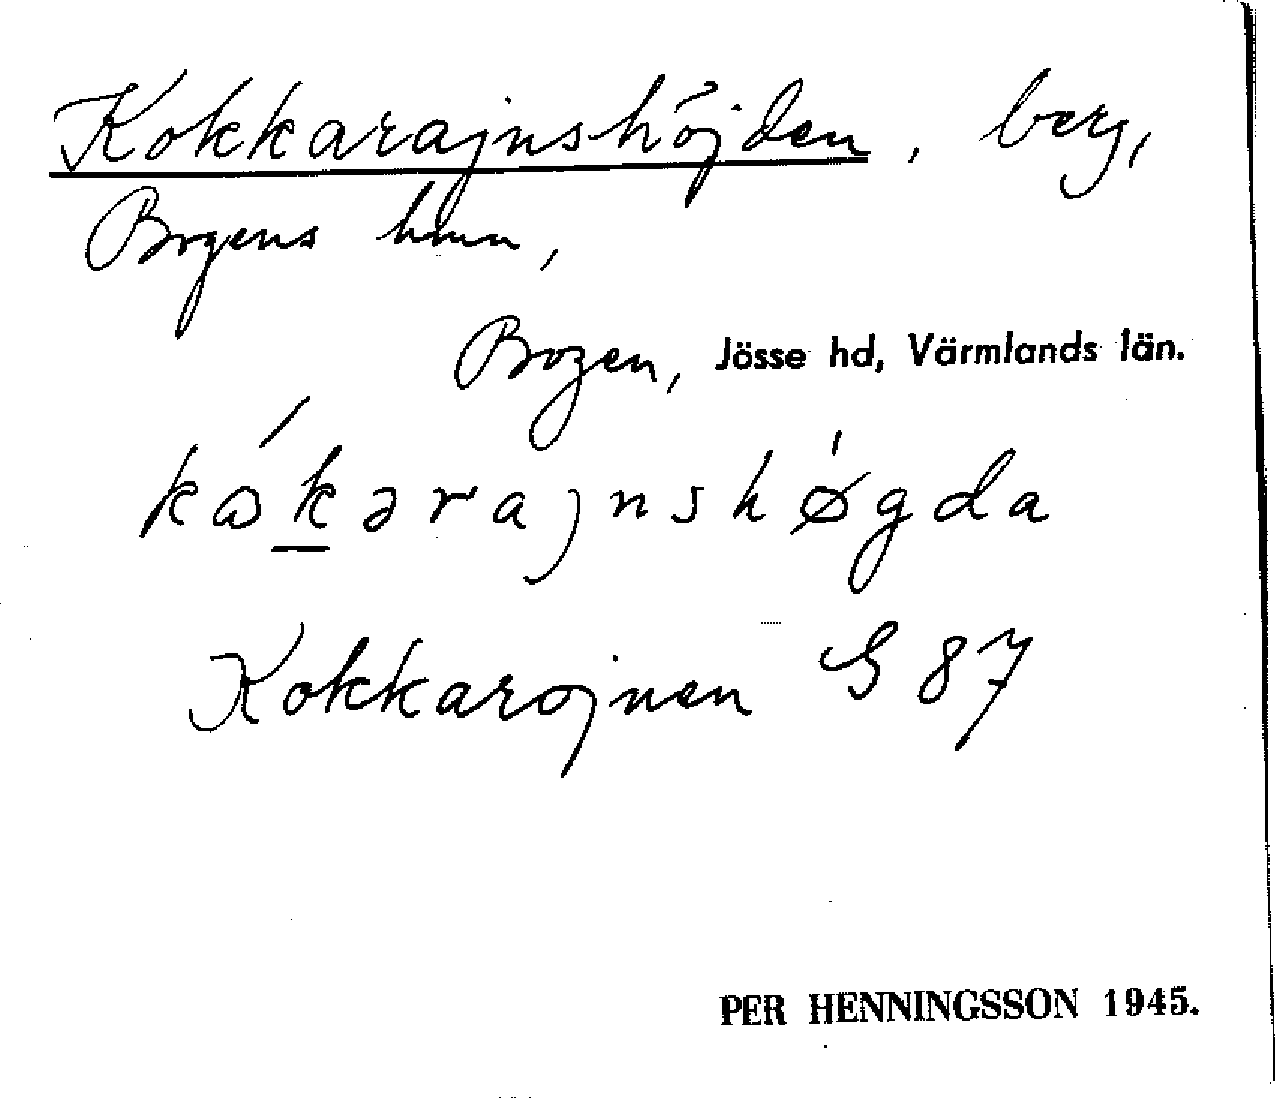 Kokkarajnshöjden, berg,
Bogens hmn,
Bogen, Jösse hd, Värmlands län.
kɷ́kərajnshøgda
Kokkarojnen G 87
PER HENNINGSSON 1945.